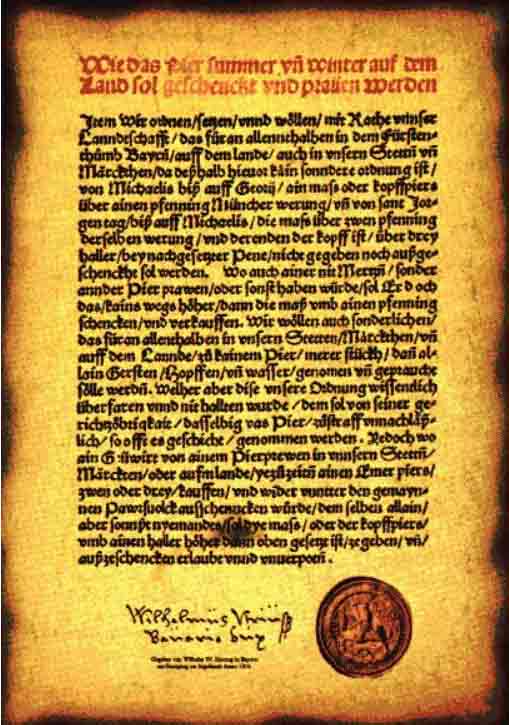 Wie das Pier summer vñ winter auf dem
Land sol geschenckt vnd prauen werden
Item Wir ordnen/setzen/vnnd wöllen/ mit Rathe vnnser
Lanndtschafft/das für an allennthalben in dem Fürsten-
thumb Bayrn/auff dem lande/auch in vnsern Stettñ vñ
Märckthen/da deßhalb hieuor kain sonndere ordnung ist/
von Michaelis biß auff Georij/ain mass oder kopffpiers
über ainen pfenning Müncher werung/vñ von sant Jor-
gen tag/biß auff Michaelis/die mass über zwen pfenning
derselben werung/vnd derenden der kopff ist/über drey
haller/bey nachgesetzter Pene/nicht gegeben noch außge-
schenckht sol werden. Wo auch ainer nit Mertzñ/sonder
annder Pier prawen/oder sonst haben würde/sol Er d och
das/kains wegs höher/dann die maß vmb ainen pfenning
schencken/vnd verkauffen. Wir wöllen auch sonderlichen/
das für an allenthalben in vnsern Stetten/Märckthen/vñ
auff dem Lannde/zů kainem Pier/merer stückh/dañ al-
lain Gersten/Hopffen/vñ wasser/genomen vñ gepraucht
sölle werdñ. Welher aber dise vnsere Ordnung wissendlich
überfaren vnnd nit hallten wurde/dem sol von seiner ge-
richtzöbrigkait/dasselbig vas Pier/zůstraff vnnachläß-
lich/so offt es geschicht/genommen werden. Yedoch wo
ain Gäwwirt von ainem Pierprewen in vnnsern Stettñ/
Märckten/oder aufm lande/yezůzeitñ ainen Emer piers/
zwen oder drey/kauffen/vnd wider vnnter den gemayn-
nen Pawrsuolck ausschencken würde/dem selben allain/
aber sonnst nyemandes/sol dye mass/oder der kopffpiers/
vmb ainen haller höher dann oben gesetzt ist/zegeben/vñ/
außzeschencken erlaubt vnnd vnuerpotñ.
Gegeben von Wilhelm IV. Herzog in Bayern